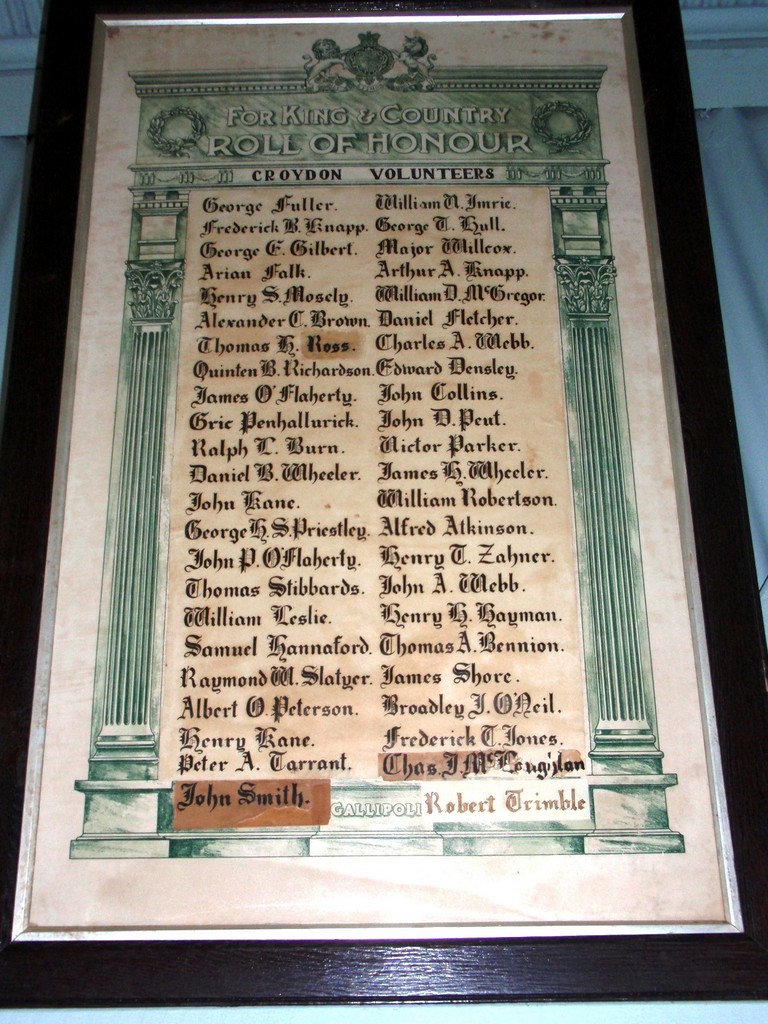 FOR KING & COUNTRY
ROLL OF HONOUR
CROYDON VOLUNTEERS
George Fuller.
Frederick B. Knapp.
George E. Gilbert.
Arian Falk.
Henry S. Mosely.
Alexander C. Brown.
Thomas H. Ross.
Quinten B. Richardson.
James O'Flaherty.
Eric Penhallurick.
Ralph L. Burn.
Daniel B. Wheeler.
John Kane.
George H. S. Priestley.
John P. O'Flaherty.
Thomas Stibbards.
William Leslie.
Samuel Hannaford.
Raymond W. Slatyer.
Albert O. Peterson.
Henry Kane.
Peter A. Tarrant.
John Smith.
William N. Imrie.
George T. Hull.
Major Willcox.
Arthur A. Knapp.
William D. McGregor.
Daniel Fletcher.
Charles A. Webb.
Edward Densley.
John Collins.
John D. Peut.
Victor Parker.
James H. Wheeler.
William Robertson.
Alfred Atkinson.
Henry T. Zahner.
John A. Webb.
Henry H. Hayman.
Thomas A. Bennion.
James Shore.
Broadley J. O'Neil.
Frederick T. Jones.
Chas. J. McLoughlan
GALLIPOLI
Robert Trimble